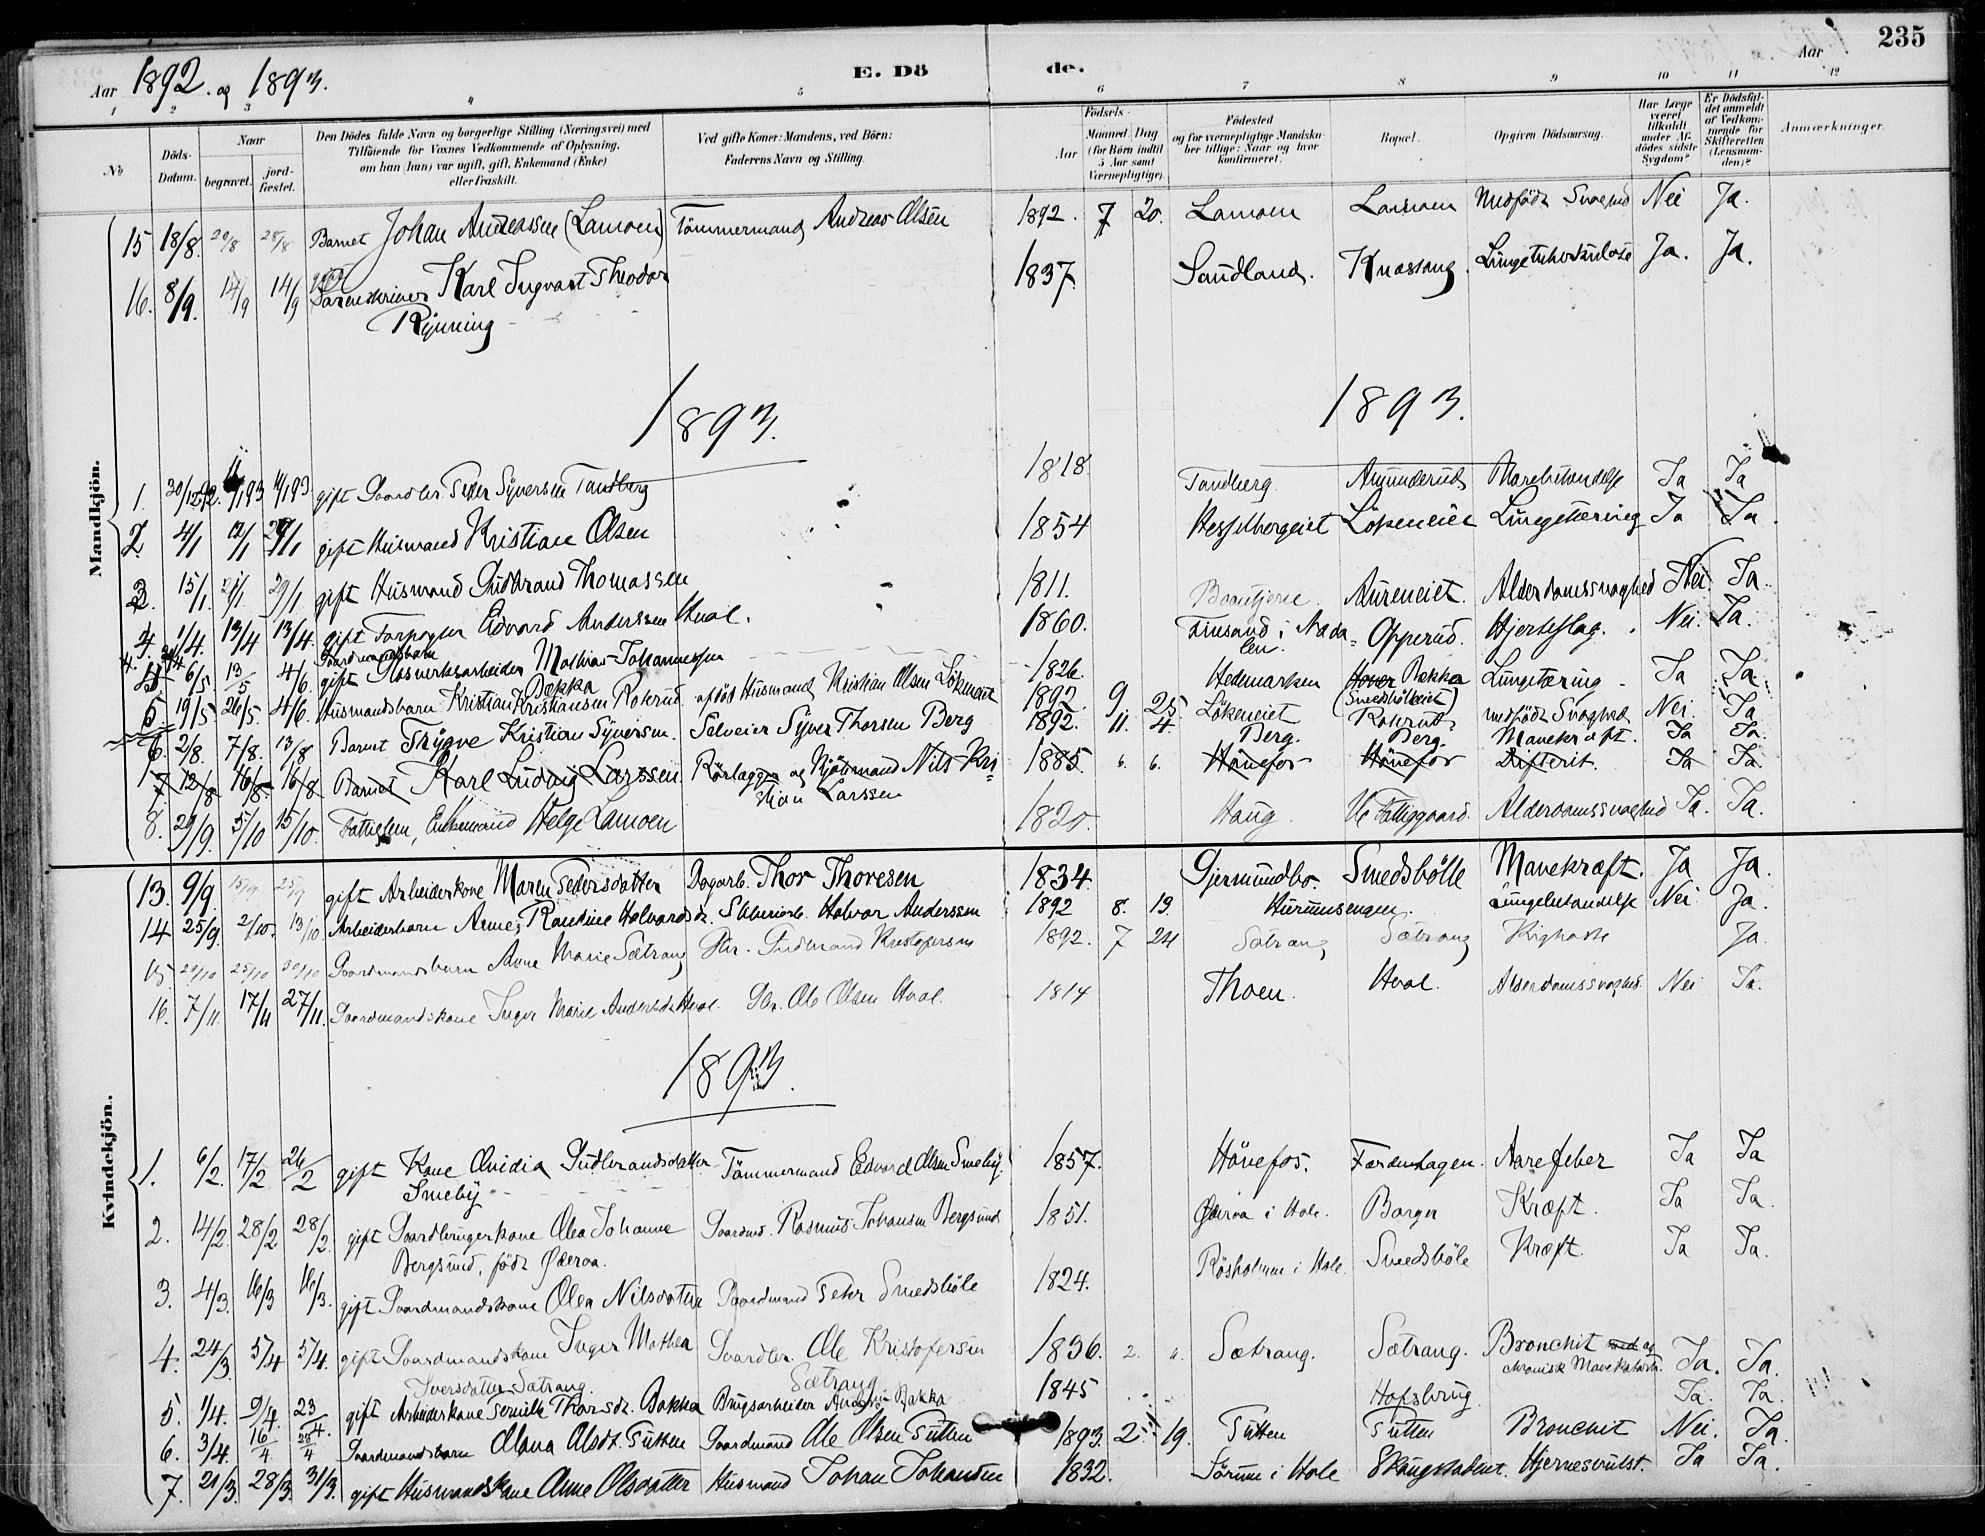 235
Aar 1892. og 1893. E. Dö de. Aar
1 2 3 4 5 6 7 8 9 10 11 12
№ Döds-Datum. Naar begravet. jord-fæstet. Den Dödes fulde Navn og borgerlige Stilling (Næringsvei) med Tilföiende for Voxnes Vedkommende af Oplysning, om han (hun) var ugift, gift, Enkemand (Enke) eller fraskilt. Ved gifte Koner: Mandens, ved Börn: Faderens Navn og Stilling. Födsels- Aar Maaned Dag (for Börn indtil 5 Aar samt Værnepligtige). Födested og for værnepligtige Mandskaber tillige: Naar og hvor konfirmeret. Bopæl. Opgiven Dödsaarsag. Har Læge været tilkaldt under Afdödes sidste Sygdom? Er Dödsfaldet anmeldt af Vedkommende for Skifteretten (Lensmanden)? Anmærkninger.
Mandkjön.
15 18/8. 28/8 28/8 Barnet Johan Andreassen (Lamoen) Tömmermand Andreas Olsen 1892. 7 20. Lamoen Lamoen Medfödt Svaghed Nei Ja.
16. 8/9. 14/9 14/9 Sorenskriver Karl Ingvart Theodor 1837 Sandland. Knestang. Lungetuberkulose Ja. Ja.
Rynning
1893. 1893.
1. 30/12 92. 93 93 gift Gaardbr. Peder Syversen Tandberg 1818 Tandberg. Amunderud Marvbetændelse Ja Ja
2. 4/1 12/1 29/1 gift Husmand Kristian Olsen 1854 Hesselbergeiet Lökeneiet Lungetæring Ja Ja.
3. 15/1. 21/1. 29/1 gift Husmand Gudbrand Thomassen 1811. Aureneiet. Alderdomssvaghed Nei. Ja.
4. 1/4. 13/4 13/4. gift Edvard Anderssen Hval. 1860. i Nada- Opperud. Hjerteslag. Nei. Ja.
len.
Gaardmandsbarn
6/5. 13/5 4/6. gift Glasverksarbeider Mathias Johannessen 1826. Hedemarken Bækka Lungetæring Ja Ja.
Bækka (Smedsböleiet)
5. 19/5 26/5. 4/6. Husmandsbarn Kristian Kristiansen Rokerud afdöd Husmand Kristian Olsen Lökeneiet 1892 9. 25. Lökeneiet Rokerud medfödt Svaghed Nei. Ja
6. 2/8. 7/8. 13/8 Barnet Trygve Kristian Syversen. Selveier Syver Thorsen Berg 1892. 11. 4. Berg. Berg. Mavekræft. Ja Ja.
7. 12/8 16/8. 16/8 Barnet Karl Ludvig Larssen Rörlægger og Nils Kri- 1885. 6. 6. Hönefos Hönefos Difterit. Ja Ja.
stian Larssen
8. 29/9. 5/10 15/10. Fattiglem, Enkemand Helge Lamoen 1820. Haug. Fattiggaard. Alderdomssvaghed Ja. Ja.
Kvindekjön.
13. 9/9. 15/9 25/9 gift Arbeiderkone Maren Pedersdatter Dagarb. Thor Thoresen 1834. Gjermundbo. Smedsbölle Mavekræft. Ja Ja.
14 25/9. 2/10. 13/10 Arbeiderbarn Anne Randine Halvorsdr. Halvor Anderssen 1892 8. 19. Hurumsengen. Lungebetændelse Nei Ja.
15. 20/10 25/10 30/10 Gaardmandsbarn Anne Marie Sætrang Gbr. Gudbrand Kristofersen 1892. 7 24 Sætrang Sætrang Kighoste Ja.
16. 7/11. 17/11 27/11. Gaardmandskone Inger Marie Andersdr Hval. Gbr. Ole Olsen Hval. 1814 Thoen. Hval. Alderdomssvaghed Nei Ja.
1893.
1. 6/2. 17/2 26/2 gift Kone Ovidia Gudbrandsdatter Tömmermand Edvard Olsen Smeby. 1857. Hönefos. Færdenhagen. Aarefeber Ja Ja
Smeby
2. 14/2. 28/2 28/2. gift Gaardbrugerkone Olea Johanne Gaardmd. Rasmus Johansen Bergsund 1851. Gjerva i Hole. Borger Kræft. Ja Ja.
Bergsund, födt Gjerva.
3. 4/3. 16/3 16/3. gift Gaardmandskone Olea Nilsdatter Gaardmand Peder Smedsböle 1824. Rösholmen i Hole. Smedsböle Kræft. Ja Ja.
4. 24/3. 5/4 5/4. gift Gaardmandskone Inger Mathea Gaardbr. Ole Kristofersen 1836. 2. 4. Sætrang. Sætrang. Bronchit og Ja. Ja.
Iversdatter Sætrang. Sætrang chronisk Mavekatarrh.
5. 1/4. 9/4. 23/4. gift Arbeiderkone Pernille Thorsdr. Bakka Brugsarbeider Bakka 1845 Hofsbrug Ja. Ja.
6. 3/4. 16/4 23/4 Gaardmandsbarn Olava Olsdr. Tutten Gaardmand Ole Olsen Tutten 1893. 2. 19. Tutten Tutten Bronchit Nei. Ja.
7. 21/3. 28/3. 31/3. gift Husmandskone Anne Olsdatter Husmand Johan Johansen 1832. Sörum i Hole Hjernesvulst. Ja Ja.